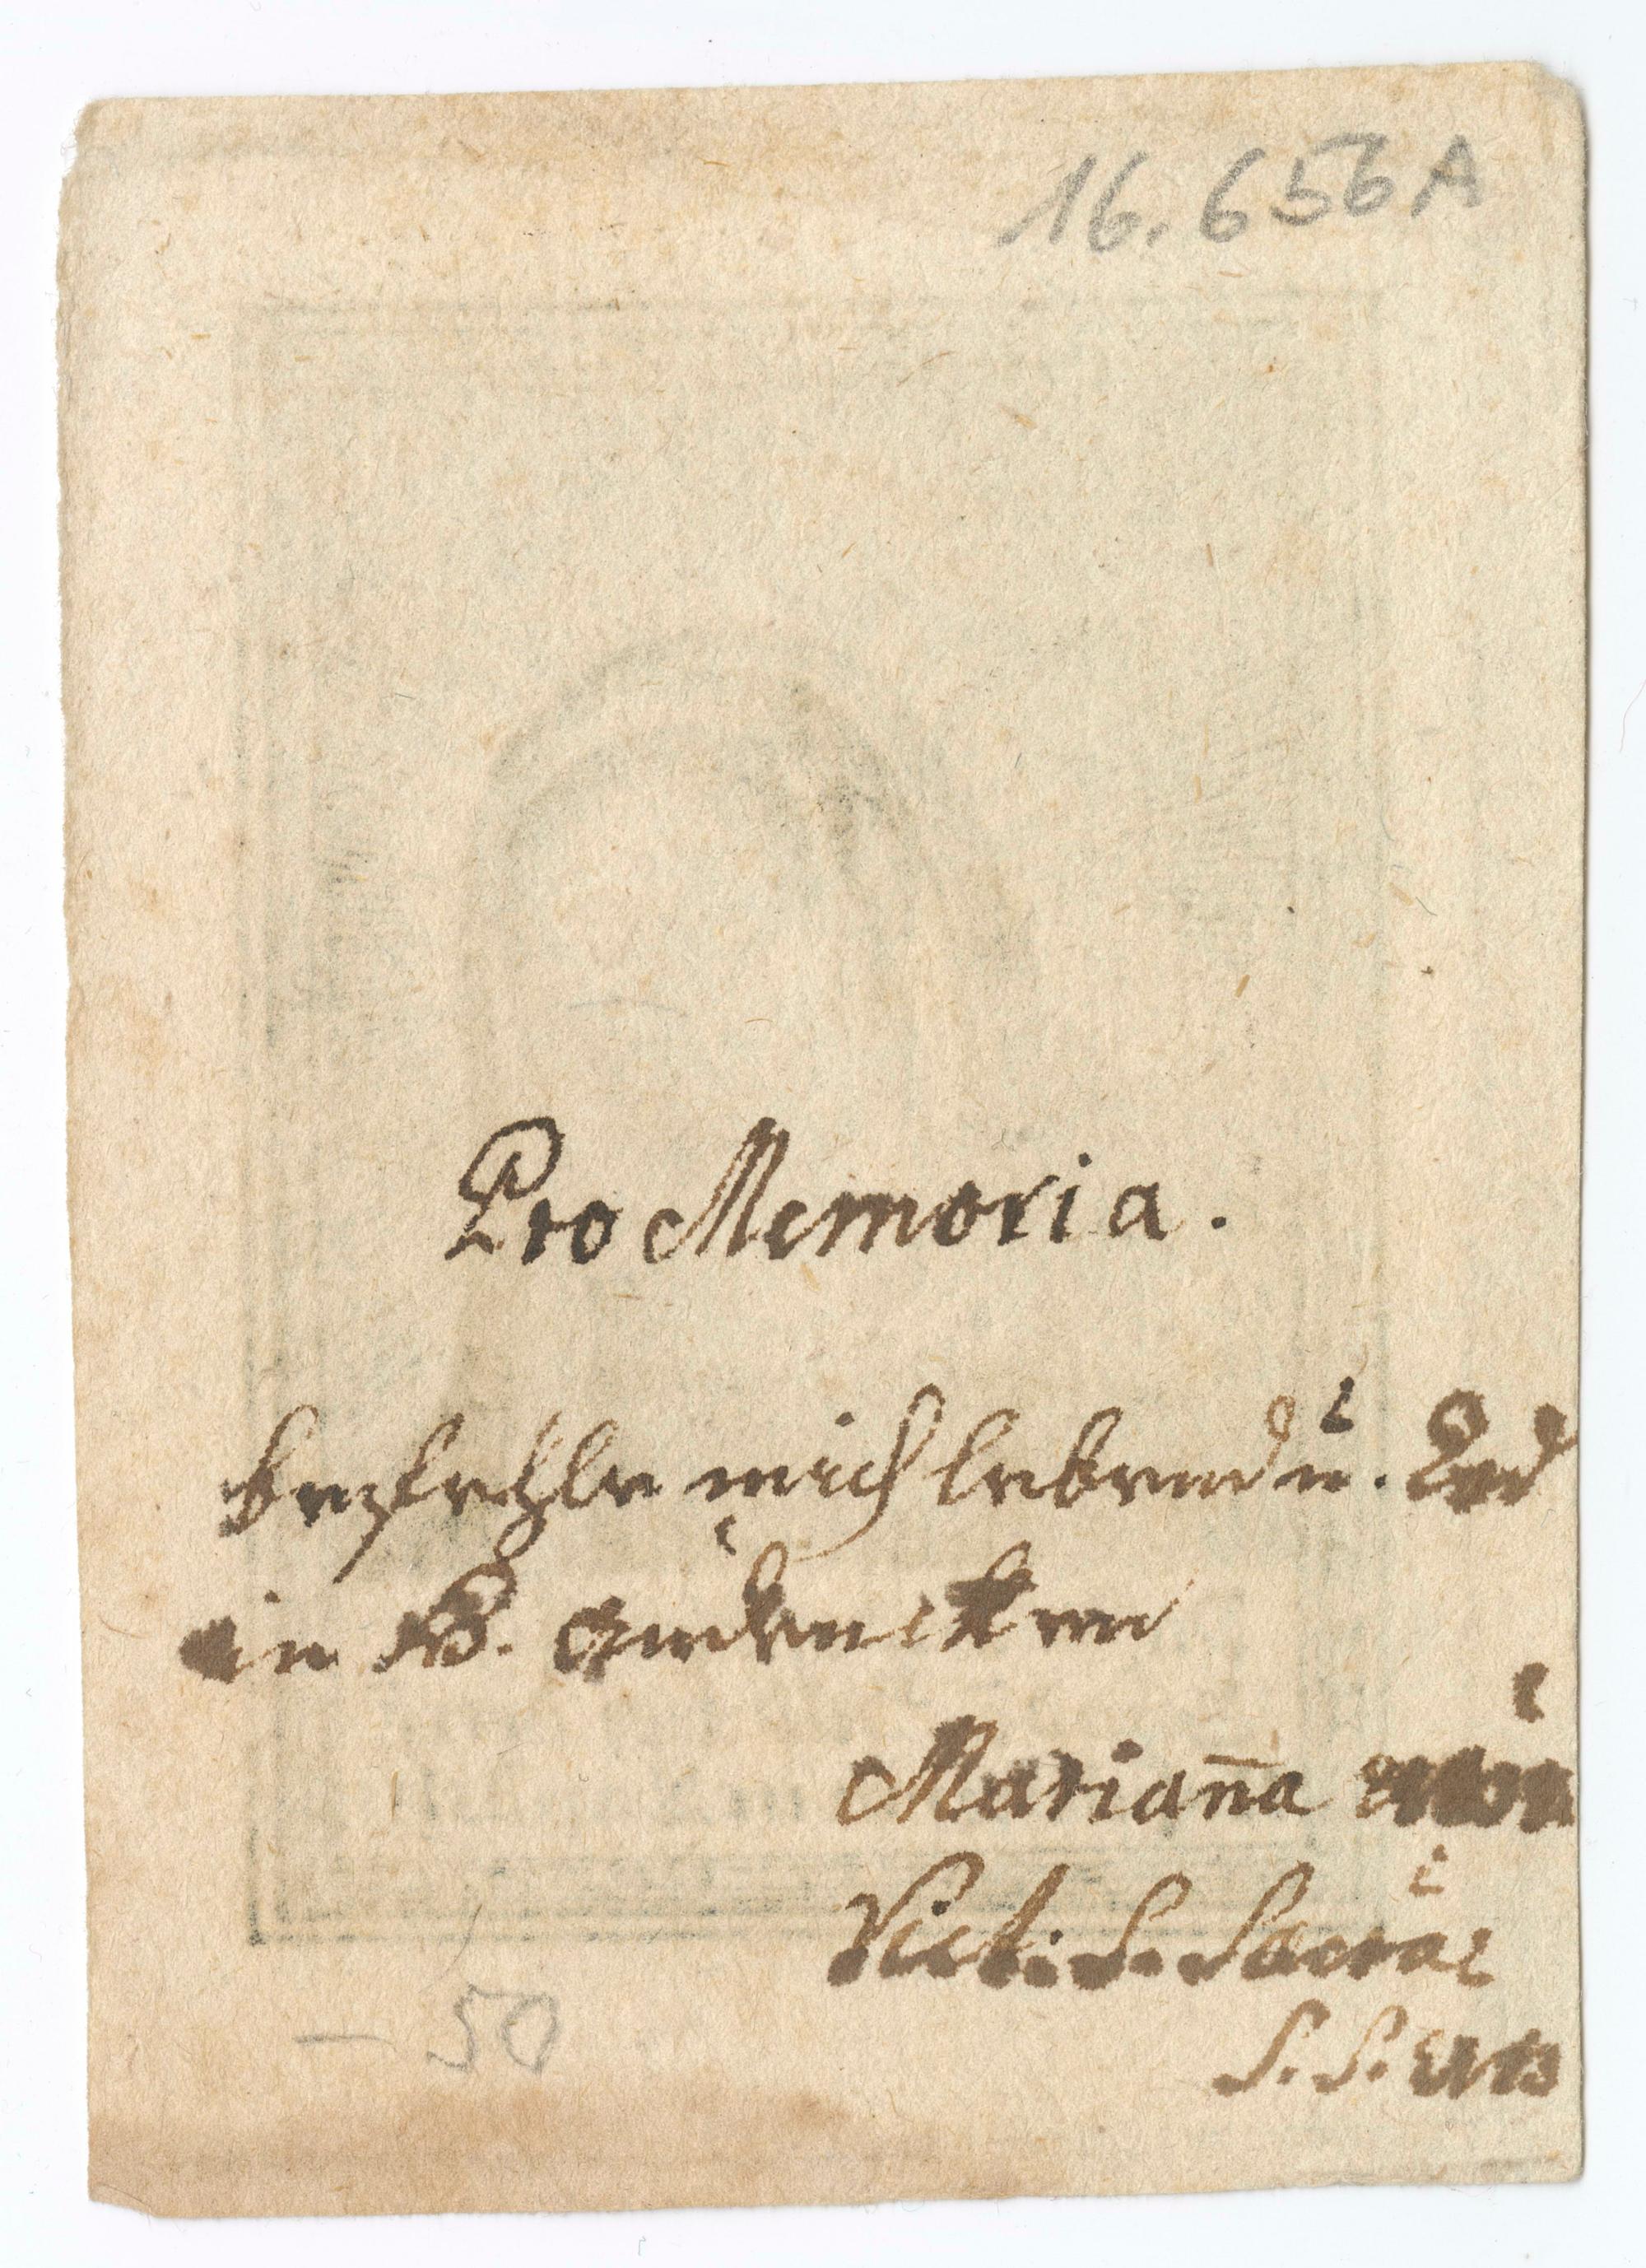 16.656A
Pro Memoria.
bezfehle mich lebend u. Tod
in andencken
Mariana von
Vict: S.
S. S.
— 50